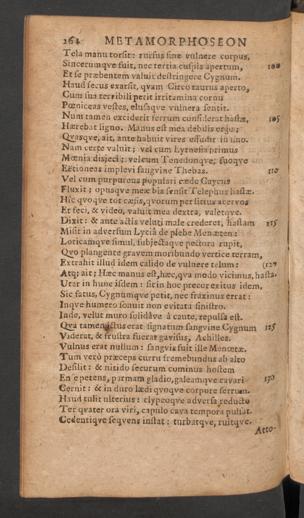 264 METAMORPHOSEON
Tela manu torsit: rursus sine vulnere corpus,
Sincerumqve fuit, nec tertia cuspis apertum, 100
Et se præbentem valuit destringere Cygnum.
Haud secus exarsit, qvam Circo taurus aperto,
Cum sua terribili petit irritamina cornu
Pœniceas vestes, elusaqve vulnera sentit.
Num tamen exciderit ferrum considerat hastæ, 105
Hærebat ligno. Manus est mea debilis ergo;
Qvasqve, ait, ante habuit vires effudit in uno.
Nam certe valuit; vel cum Lyrnesia primus
Mœnia disjeci; vel cum Tenedonqve, suoqve
Eëtioneas implevi sangvine Thebas. 110
Vel cum purpureus populari cæde Caycus
Fluxit: opusqve meæ bis sensit Telephus hastæ.
Hîc qvoqve tot cæsis, qvorum per littus acervos
Et feci, & video, valuit mea dextra, valetqve.
Dixit: & ante actis veluti male crederet, hastam 115
Misit in adversum Lyciâ de plebe Menœten:
Loricamqve simul, subjectaqve pectora rupit,
Qvo plangente gravem moribundo vertice terram,
Extrahit illud idem calido de vulnere telum: (120
Atq; ait; Hæc manus est, hæc, qva modo vicimus, hasta.
Utar in hunc isdem: sit in hoc precor exitus idem.
Sic fatus, Cygnumqve petit, nec fraxinus errat:
Inqve humero sonuit non evitata sinistro.
Inde, velut muro solidâve à caute, repulsa est.
Qvà tamen ictus erat signatum sangvine Cygnum 125
Viderat, & frustra fuerat gavisus, Achilles.
Vulnus erat nullum: sangvis fuit ille Menœtæ.
Tum verò præceps curru fremebundus ab alto
Desilit: & nitido securum cominus hostem
Ense petens, parmam gladio, galeamqve cavari 130
Cernit: & in duro lædi qvoqve corpore ferrum.
Haud tulit ulterius: clypeoqve adversa reducto
Ter qvater ora viri, capulo cava tempora pulsat.
Cedentiqve seqvens instat: turbatqve, ruitqve.
Atto-